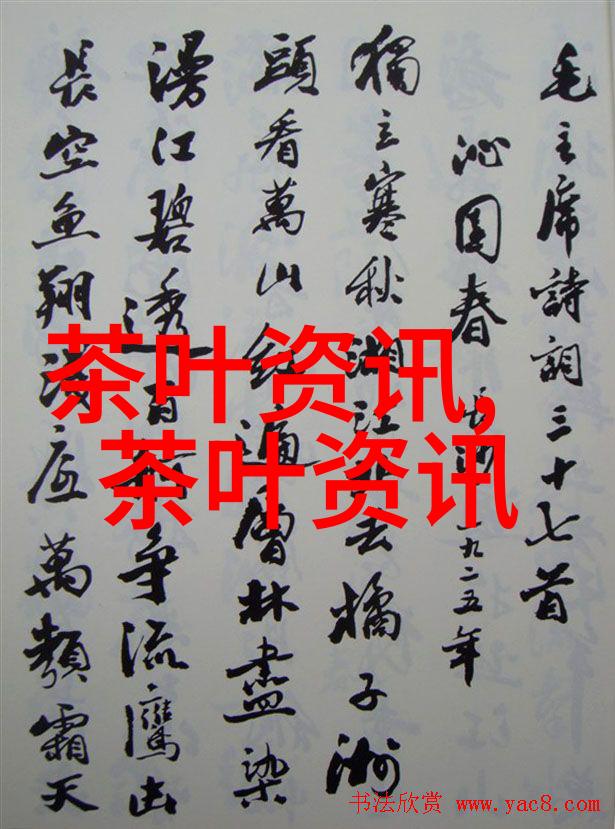 毛主席詩詞三十七首
沁園春 長沙 一九二五年
獨立寒秋湘江北去橘子洲
頭看萬山红遍層林盡染
漫江碧透百舸争流鷹击
長空鱼翔浅底萬類霜天
茶叶资讯,
茶叶资讯
书法欣赏 www.yac8.com